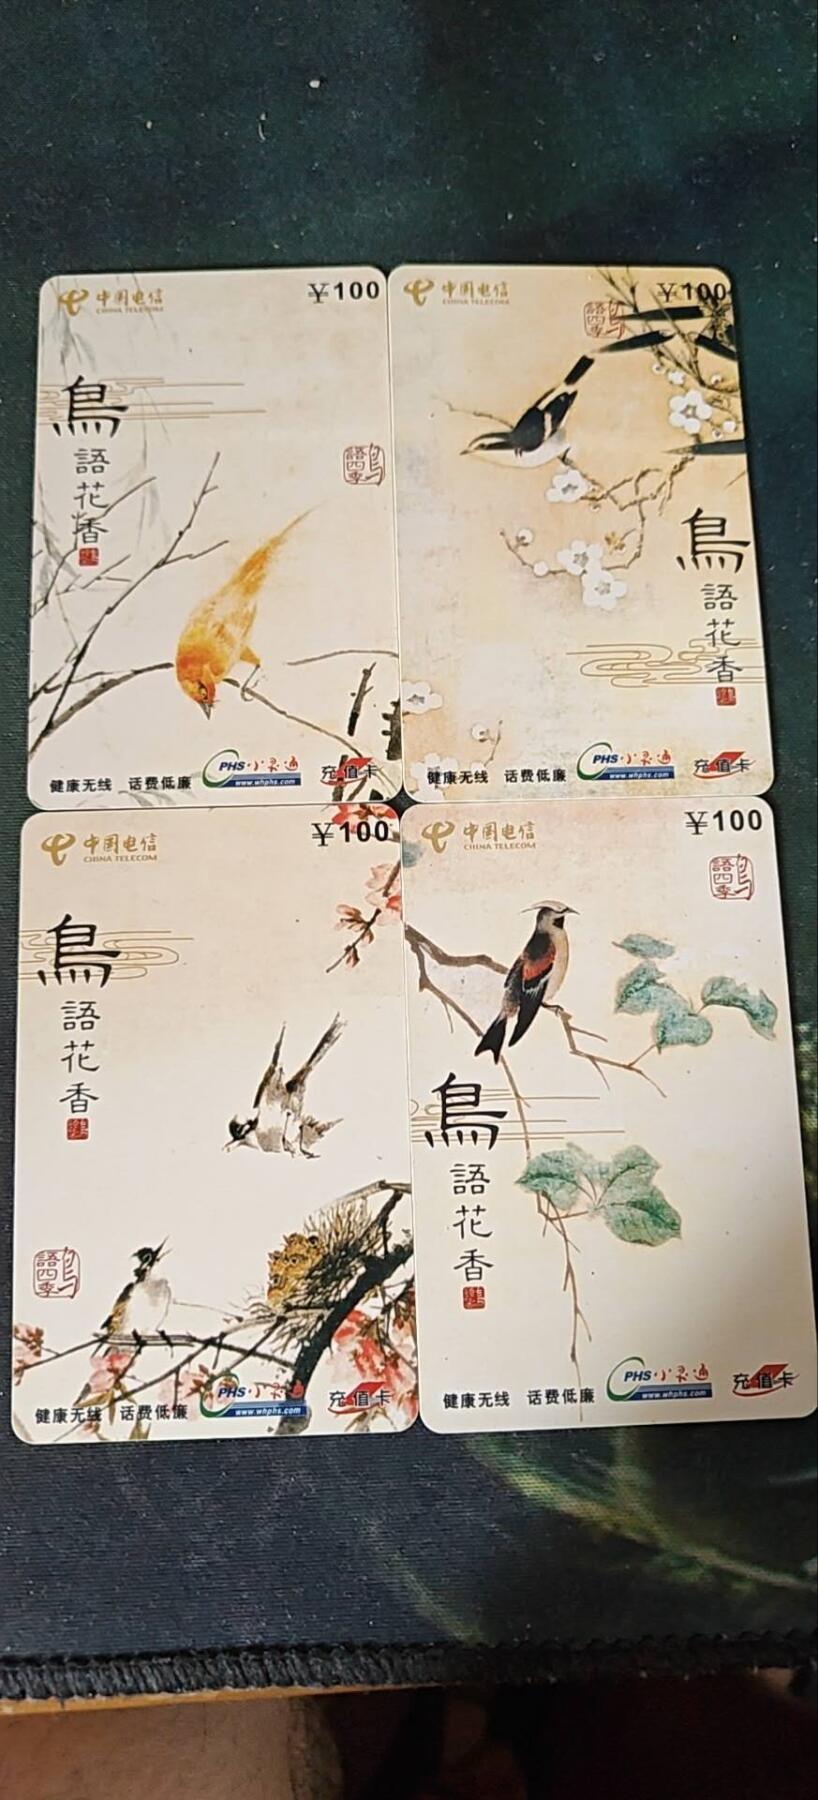 中国电信
CHINA TELECOM
¥100
鳥
語
花
香
鳥語四季
健康无线 话费低廉
PHS·小灵通
www.whphs.com
充值卡
中国电信
CHINA TELECOM
¥100
鳥語四季
鳥
語
花
香
健康无线 话费低廉
PHS·小灵通
www.whphs.com
充值卡
中国电信
CHINA TELECOM
¥100
鳥
語
花
香
鳥語四季
健康无线 话费低廉
PHS·小灵通
www.whphs.com
充值卡
中国电信
CHINA TELECOM
¥100
鳥語四季
鳥
語
花
香
健康无线 话费低廉
PHS·小灵通
www.whphs.com
充值卡